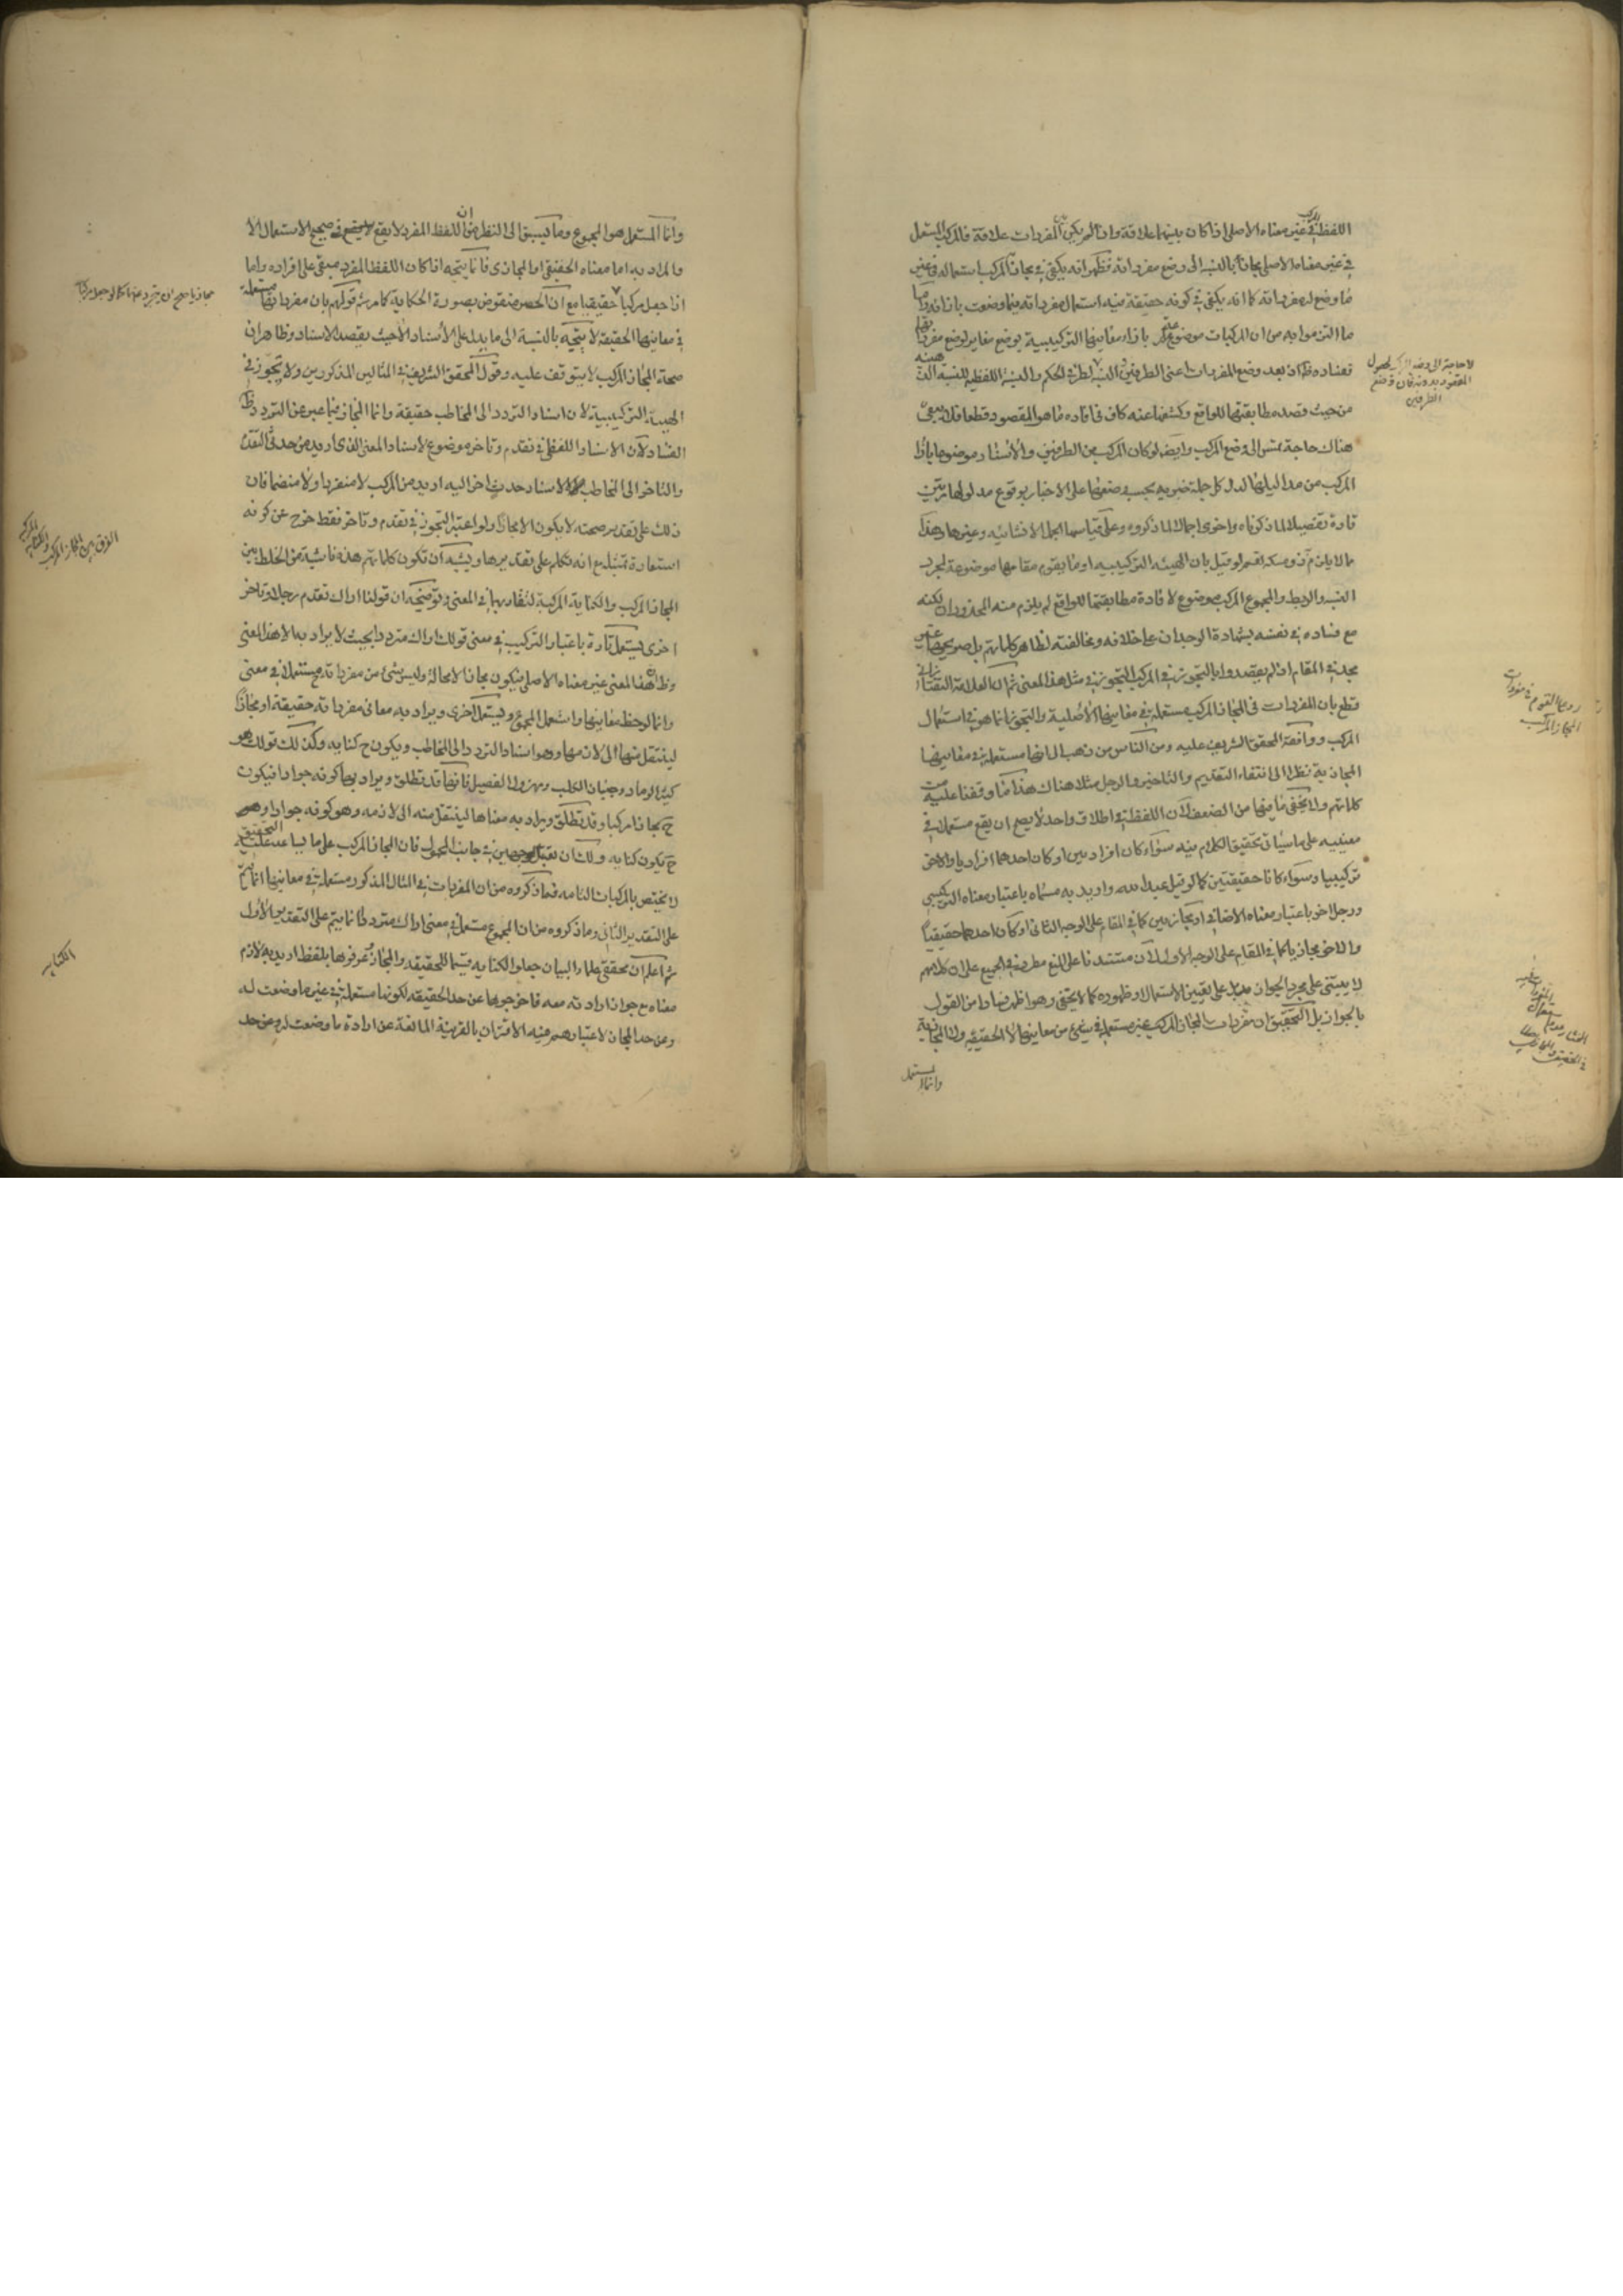 اللفظ المركب في غير معناه الاصلي اذا كان بينهما علاقة وان لم يكن بين المفردات علاقة فالمركب المستعمل
في غير معناه الاصلي مجاز بالنسبة الى وضع مفرداته فظهر انه يكفي في مجاز المركب استعماله في غير
ما وضع له مفرداته كما انه يكفي في كونه حقيقة فيه استعمال مفرداته فيما وضعت بازائه واما
ما التزموا به من ان المركبات موضوعة بازاء معانيها التركيبية بوضع مغاير لوضع مفرداتها
ففساده ظ لان بعد وضع المفردات اعني الطرفين لطرفي الحكم والنسبة اللفظية للنسبة
من حيث قصد مطابقتها للواقع وكشفها عنه كاف في افادة ما هو المقصود قطعا فلا يبقى
هناك حاجة تمس الى وضع المركب وايضا لو كان المركب من الطرفين والاسناد موضوعا بازاء
المركب من مداليلها لدل كل جملة خبرية بحسب وضعها على الاخبار بوقوع مدلولها مرتين
تارة تفصيلا لما ذكرناه واخرى اجمالا لما ذكروه وعلى قياسها الجمل الانشائية وغيرها وهذا
مما لا يلتزم ذو مسكة نعم لو قيل بان الهيئة التركيبية او ما يقوم مقامها موضوعة لمجرد
النسبة والربط والمجموع المركب موضوع لافادة مطابقتها للواقع لم يلزم منه المحذوران لكنه
مع فساده في نفسه بشهادة الوجدان على خلافه ومخالفته لظاهر كلماتهم بل صريحها غير
مجد في المقام اذ لم يقصدوا بالتجوز في المركب التجوز في مثل هذا المعنى ثم ان العلامة التفتازاني
قطع بان المفردات في المجاز المركب مستعملة في معانيها الاصلية والتجوز انما هو في استعمال
المركب ووافقه المحقق الشريف عليه ومن الناس من ذهب الى انها مستعملة في معانيها
المجازية نظرا الى انتفاء التقديم والتاخير والرجل مثلا هناك هذا ما وقفنا عليه من
كلماتهم ولا يخفى ما فيها من الضعف لان اللفظ في اطلاق واحد لا يصح ان يقع مستعملا في
معنييه على ما سياتي تحقيق الكلام فيه سواء كان افراديين او كان احدهما افراديا والاخر
تركيبيا وسواء كانا حقيقتين كما لو قيل عبد الله واريد به مسماه باعتبار معناه التركيبي
ورجل اخر باعتبار معناه الاضافي او مجازيين كما في المقام على الوجه الثاني او كان احدهما حقيقيا
والاخر مجازيا كما في المقام على الوجه الاول لان مستندنا على المنع مطرد في الجميع على ان كلامهم
لا يبتني على مجرد الجواز بل على تعيين الاستعمال او ظهوره كما لا يخفى وهو اظهر فسادا من القول
بالجواز بل التحقيق ان مفردات المجاز المركب غير مستعملة في شيء من معانيها لا الحقيقية ولا المجازية
وانما المستعمل
لا حاجة الى وضع المركب لحصول
المقصود بدونه فان وضع
الطرفين
رد على القوم في مفردات
المجاز المركب
وانما المستعمل هو المجموع وما يسبق الى النظر من ان اللفظ المفرد لا يقع في صحيح الاستعمال الا
والمراد به اما معناه الحقيقي او المجازي فانما يتجه اذا كان اللفظ المفرد مبقى على افراده واما
اذا جعل مركبا حقيقيا مع ان الحصر منقوض بصورة الحكاية كما مر ثم قولهم بان مفرداتها مستعملة
في معانيها الحقيقية لا يتجه بالنسبة الى ما يدل على الاسناد الا حيث يقصد الاسناد وظاهر ان
صحة المجاز المركب لا يتوقف عليه وقول المحقق الشريف في المثالين المذكورين ولا تجوز في
الهيئة التركيبية لان اسناد التردد الى المخاطب حقيقة وانما المجاز فيما عبر عن التردد ظ
الفساد لان الاسناد اللفظي في تقدم وتاخر موضوع لاسناد المعنى الذي اريد من حدثي التقدم
والتاخر الى المخاطب لا لاسناد حدث اخر اليه اريد من المركب لا منفردا ولا منضما فان
ذلك على تقدير صحته لا يكون الا مجازا ولو اعتبر التجوز في تقدم وتاخر فقط خرج عن كونه
استعارة تمثيل مع انه تكلم على تقديرها ويشبه ان تكون كلماتهم هذه ناشية من الخلط بين
المجاز المركب والكناية المركبة لتقاربهما في المعنى وتوضيحه ان قولنا اراك تقدم رجلا وتاخر
اخرى يستعمل تارة باعتبار التركيب في معنى قولك اراك مترددا بحيث لا يراد به الا هذا المعنى
وظ ان هذا المعنى غير معناه الاصلي فيكون مجازا لا محالة وليس شيء من مفرداته ح مستعملا في معنى
وانما لوحظ معانيها واستعمل المجموع ويستعمل اخرى ويراد به معاني مفرداته حقيقة او مجازا
لينتقل منها الى لازمها وهو اسناد التردد الى المخاطب ويكون ح كناية وكذلك قولك هو
كثير الرماد وجبان الكلب ومهزول الفصيل فانها قد تطلق ويراد بها كونه جوادا فيكون
ح مجازا مركبا وقد تطلق ويراد به معناها لينتقل منه الى لازمه وهو كونه جوادا وهو
ح يكون كناية ولك ان تعتبر الوجهين في جانب المحمول فان المجاز المركب على ما يساعد عليه التحقيق
لا يختص بالمركبات التامة فما ذكروه من ان المفردات في المثال المذكور مستعملة في معانيها انما يتم
على التقدير الثاني وما ذكروه من ان المجموع مستعمل في معنى اراك مترددا فانما يتم على التقدير الاول
ثم اعلم ان محققي علماء البيان جعلوا الكناية قسيما للحقيقة والمجاز وعرفوها بلفظ اريد به لازم
معناه مع جواز ارادته معه فاخرجوها عن حد الحقيقة لكونها مستعملة في غير ما وضعت له
وعن حد المجاز لاعتبارهم فيه الاقتران بالقرينة المانعة عن ارادة ما وضعت له وعن حد
الفرق بين المجاز المركب والكناية المركبة
الكناية